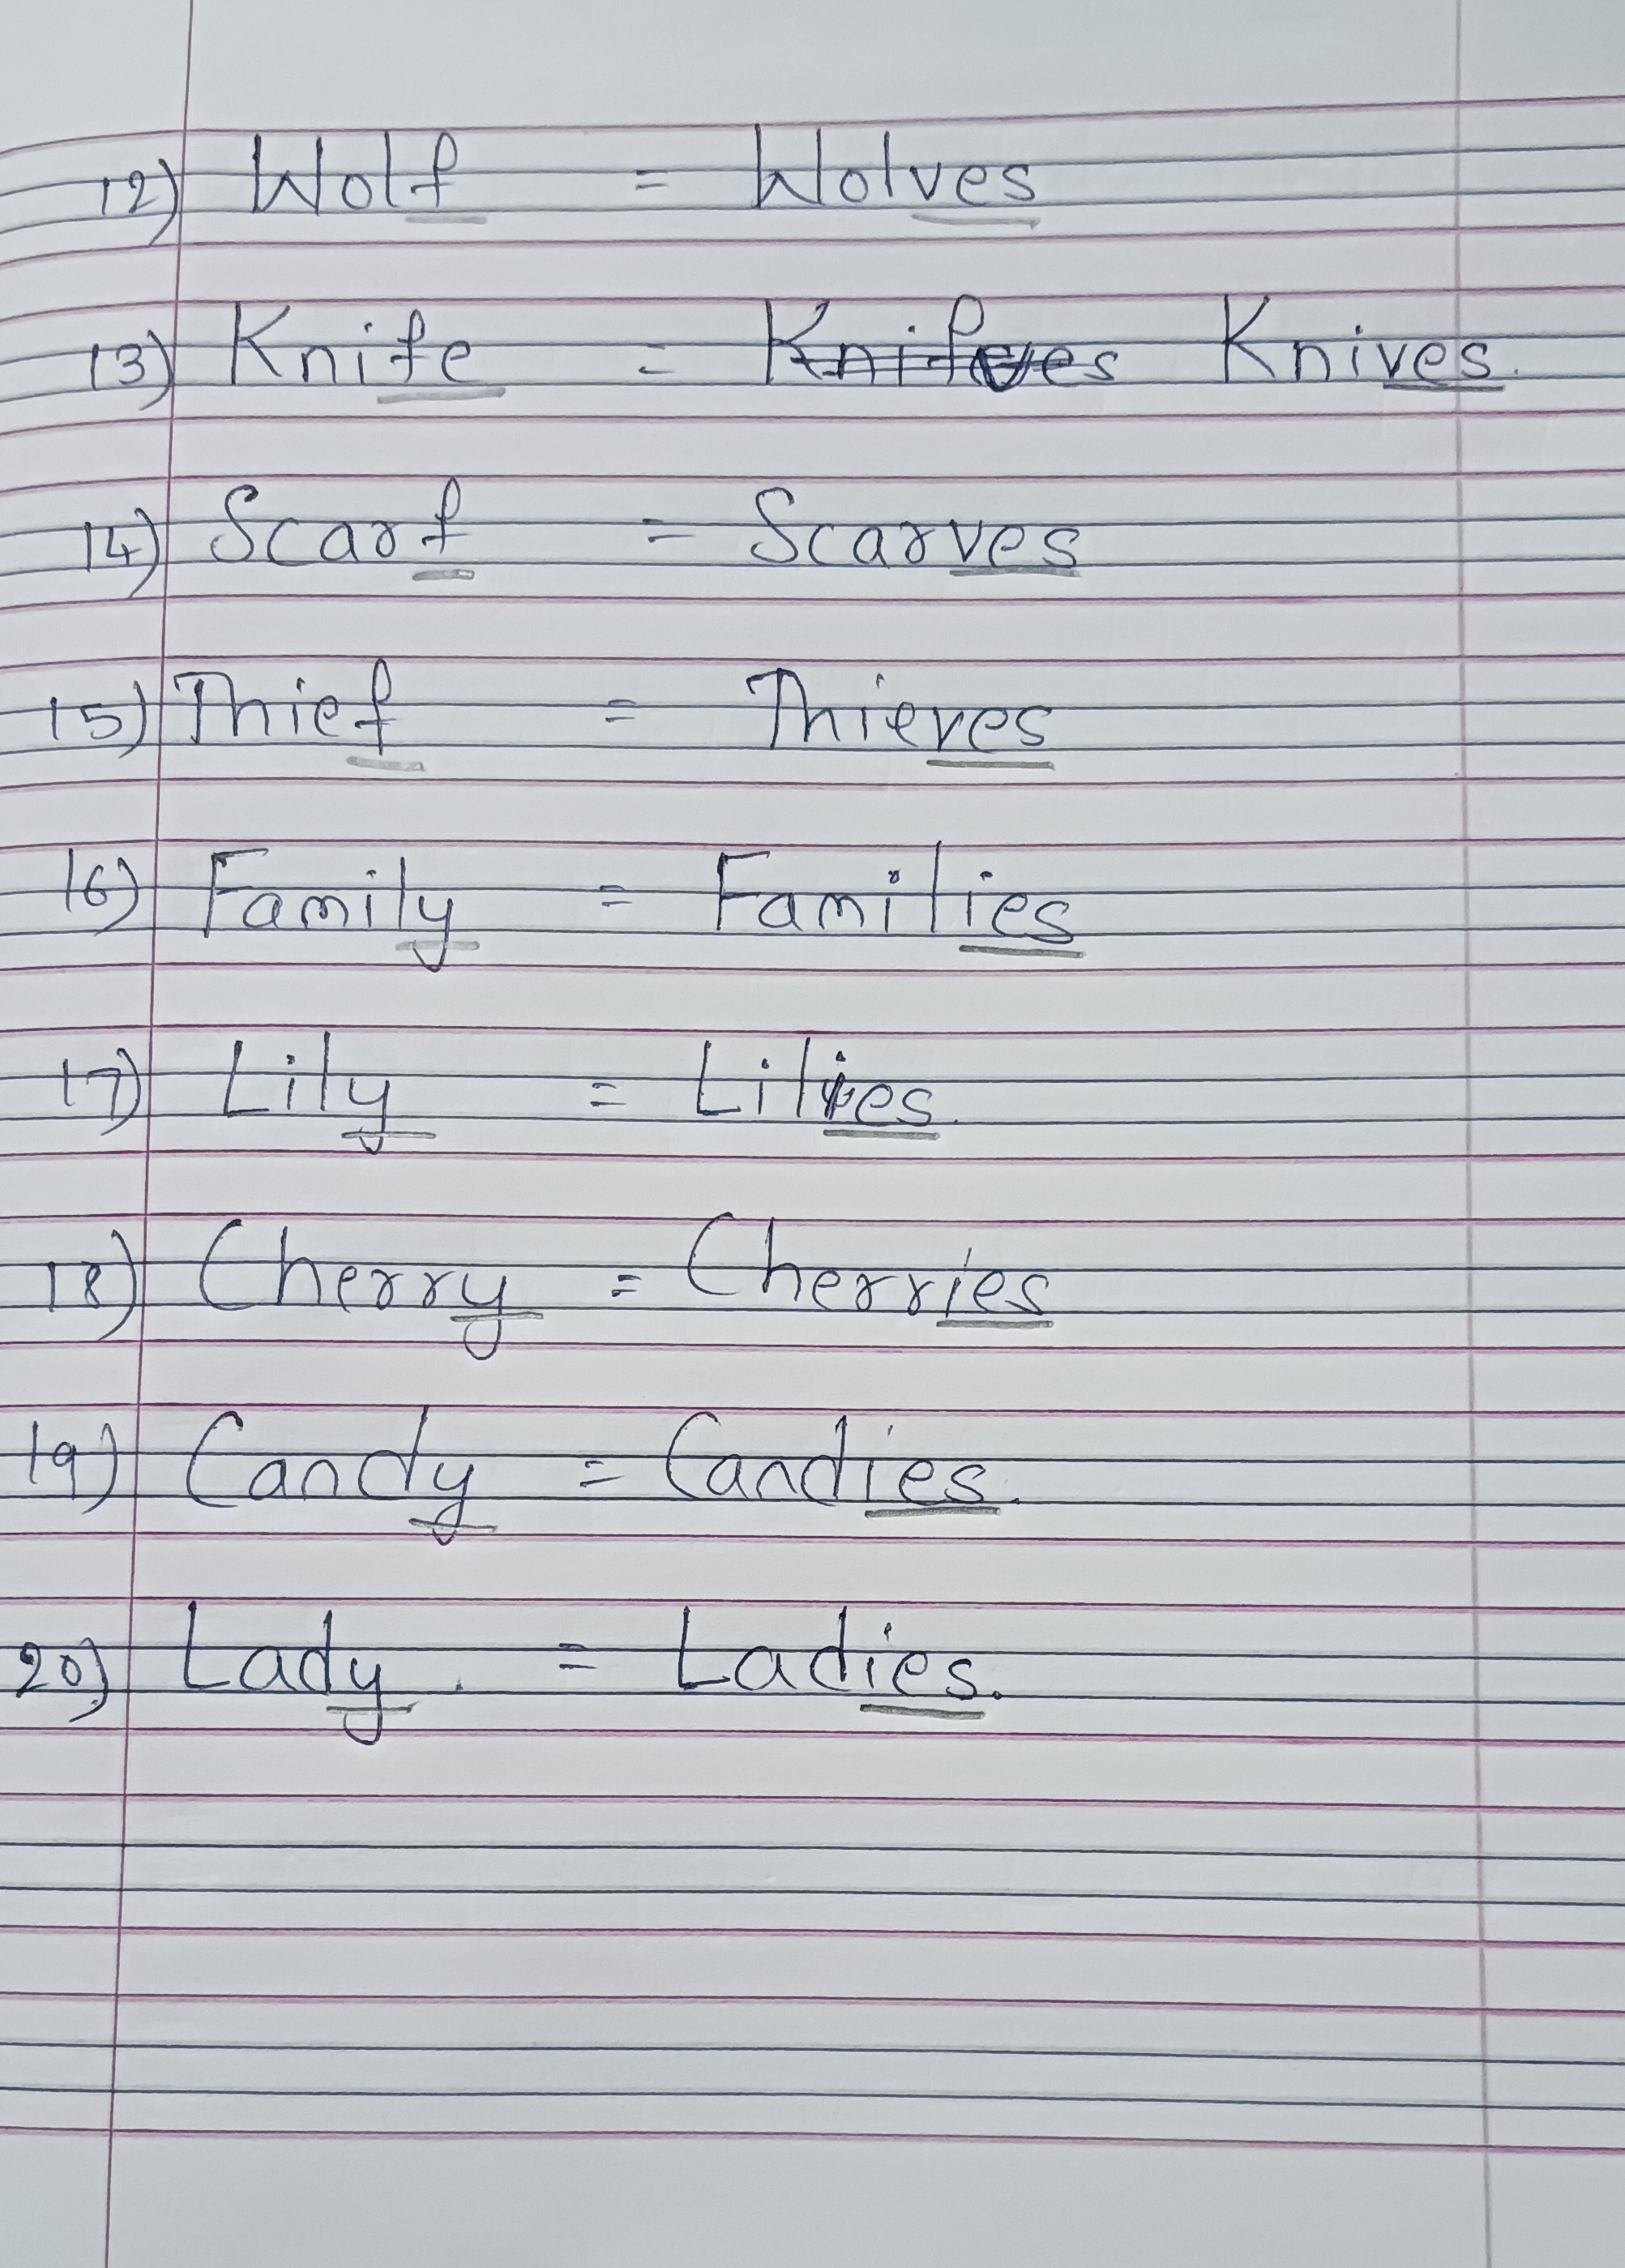 12) Wolf = Wolves
13) Knife = Knives.
14) Scarf = Scarves
15) Thief = Thieves
16) Family = Families
17) Lily = Lilies.
18) Cherry = Cherries
19) Candy = Candies.
20) Lady. = Ladies.